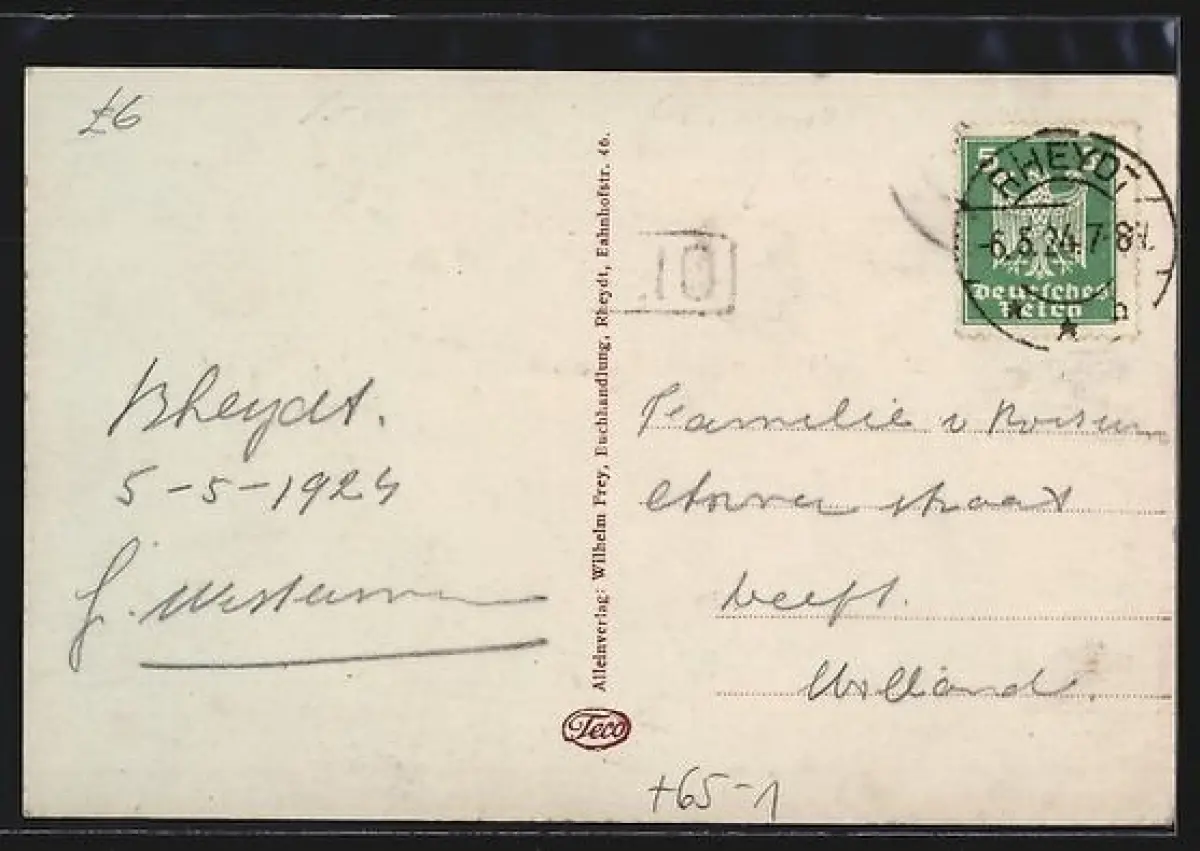 £6
Rheydt.
5-5-1924
Alleinverlag: Wilhelm Frey, Buchhandlung, Rheydt, Bahnhofstr. 46.
Teco
10
5
RHEYDT
-6.5.24.7-8N.
Deutsches
Reich
Familie v
straat
Holland.
+65-1